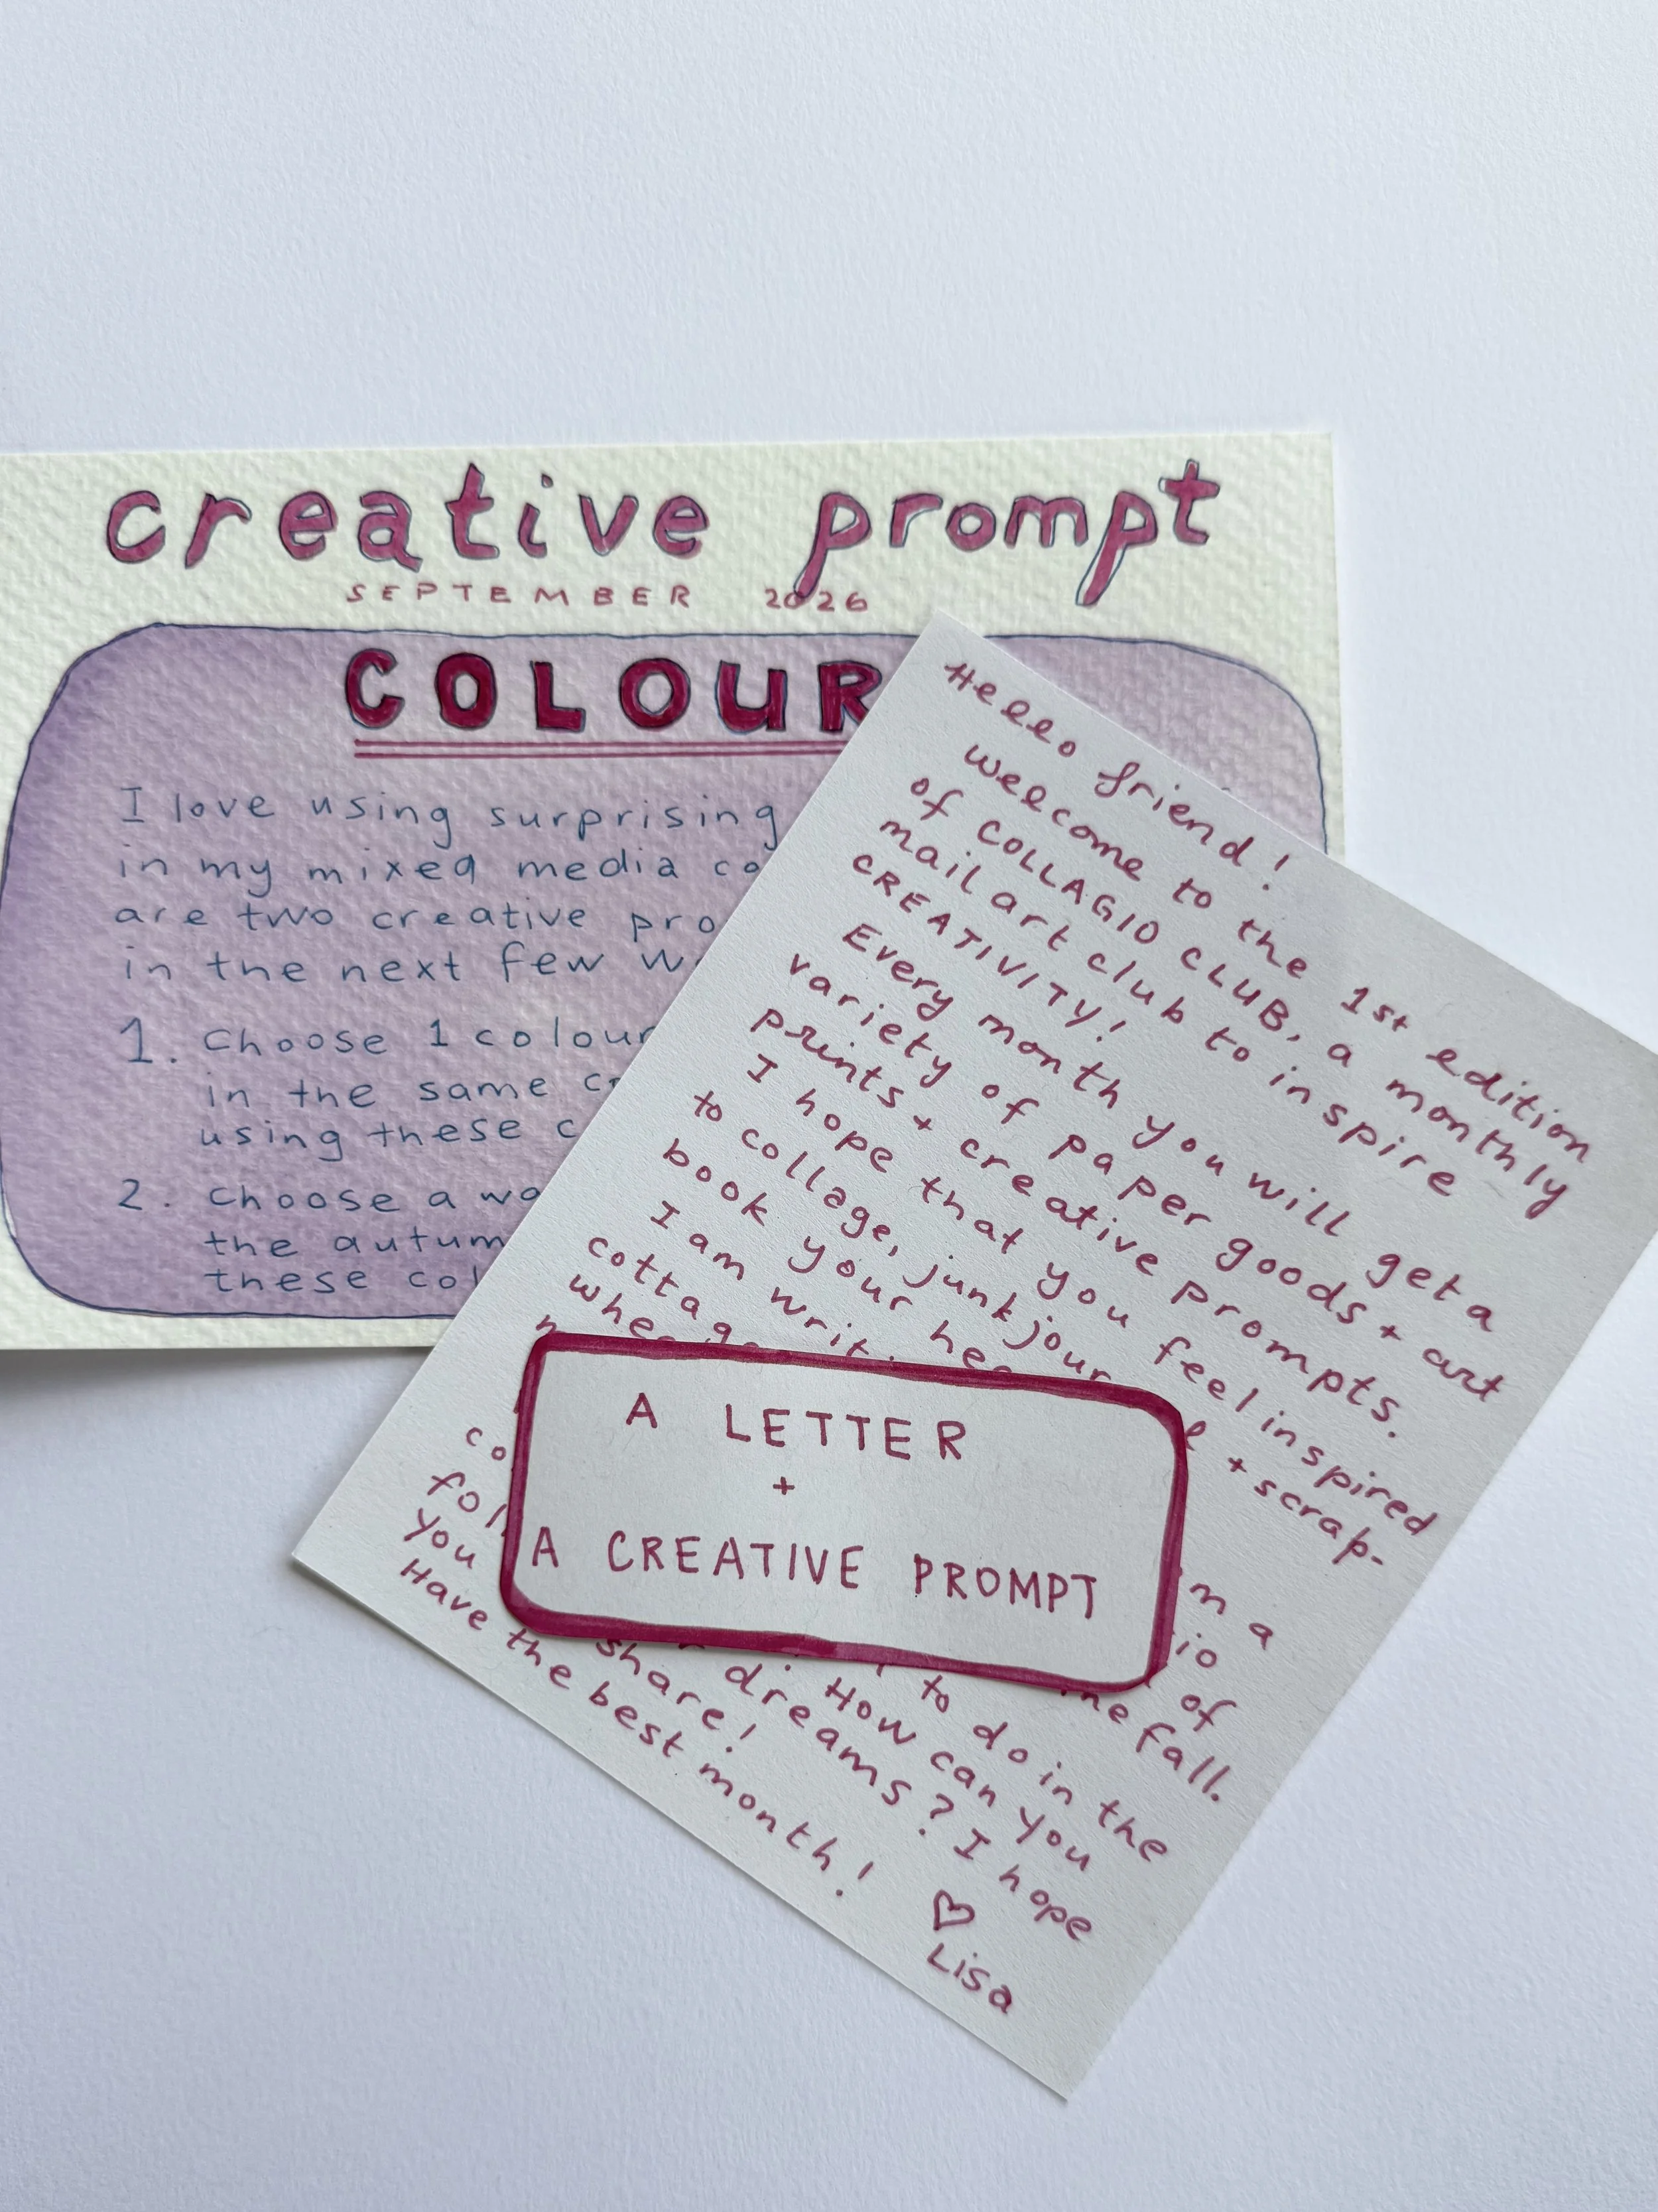 creative prompt
SEPTEMBER 2026
COLOUR
I love using surprising
in my mixed media
are two creative
in the next few
1. Choose 1 colour
in the same
using these
2. Choose a
the
these
Hello friend!
Welcome to the 1st edition
of COLLAGIO CLUB, a monthly
mail art club to inspire
CREATIVITY!
Every month you will get a
variety of paper goods + art
prints + creative prompts.
I hope that you feel inspired
to collage, junk + scrap-
book your
I am
A LETTER
+
A CREATIVE PROMPT
a
of
fall.
to do in the
How can you
share! dreams? I hope
you
Have the best month!
♡
Lisa